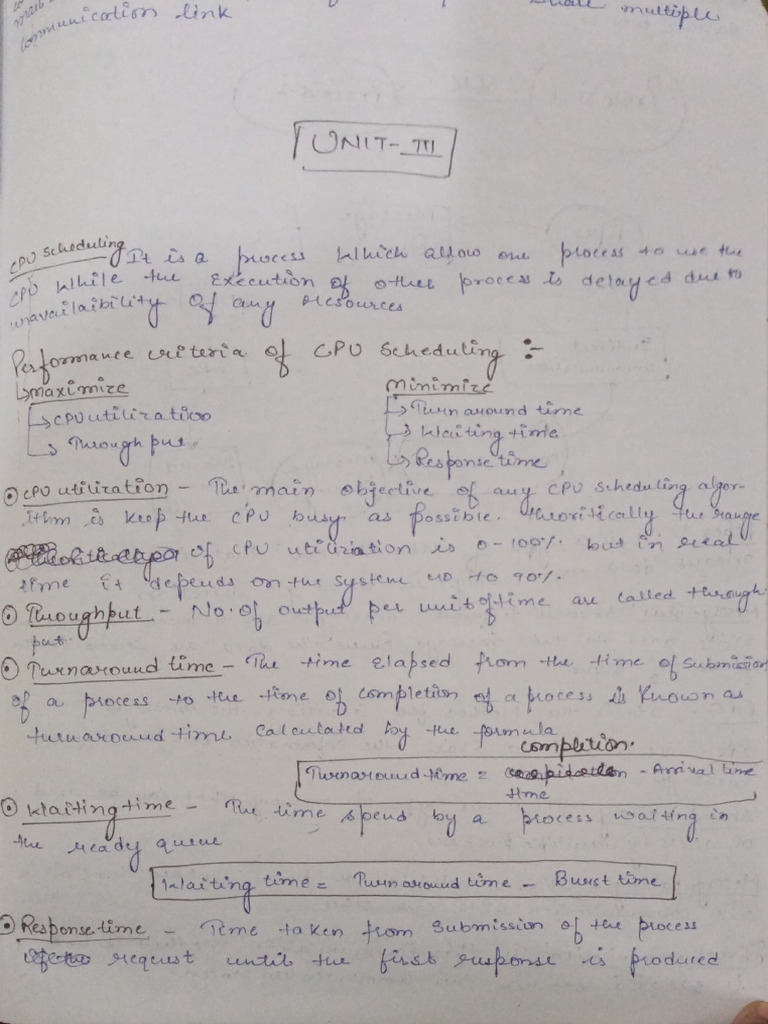 communication link
multiple
UNIT-III
CPU Scheduling It is a process which allow one process to use the
CPU while the execution of other process is delayed due to
unavailaibility of any resources
Performance criteria of CPU Scheduling :-
Maximize Minimize
CPU utilization Turnaround time
Through put Waiting time
Response time
CPU utilization - The main objective of any CPU scheduling algor-
ithm is keep the CPU busy as possible. theoritically the range
of CPU utilization is 0-100% but in real
time it depends on the system up to 90%.
Throughput - No. of output per unit of time are called through
put
Turnaround time - The time elapsed from the time of submission
of a process to the time of completion of a process is known as
turnaround time calculated by the formula
completion.
Turnaround time = - Arrival time
time
Waiting time - The time spend by a process waiting in
the ready queue
Waiting time = Turnaround time - Burst time
Response time - Time taken from submission of the process
request until the first response is produced